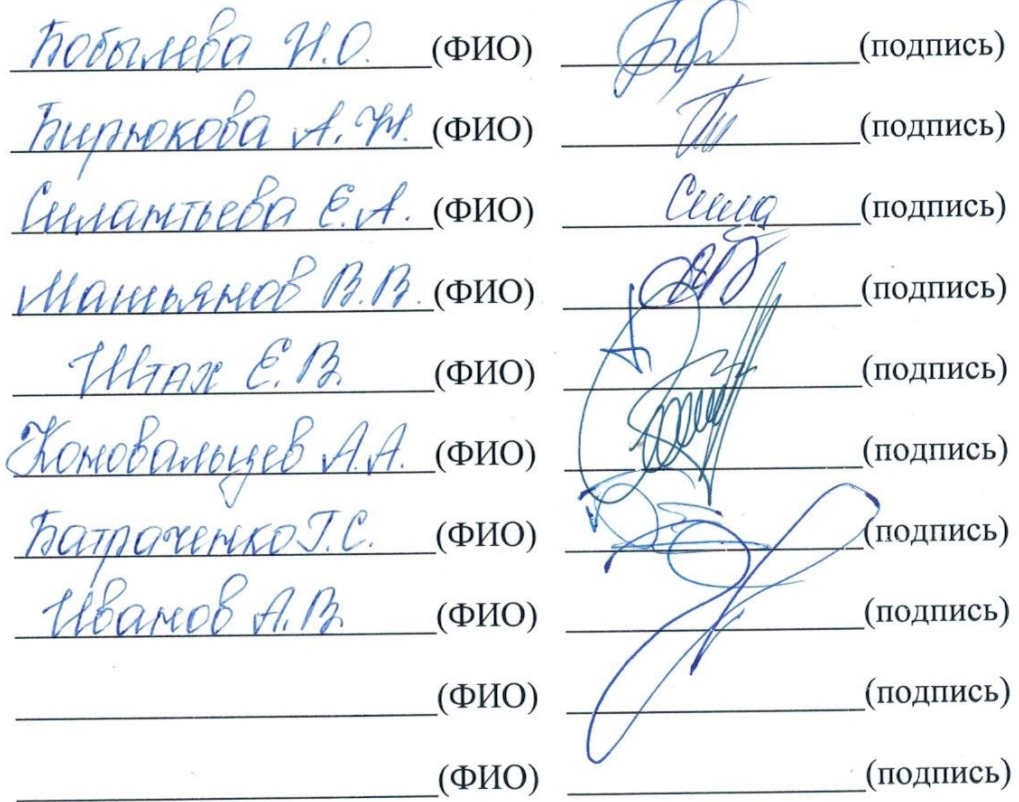 Бобылева Н.О. (ФИО) (подпись)
Бирюкова А.Н. (ФИО) (подпись)
Силантьева Е.А. (ФИО) Сила (подпись)
Машьянов В.В. (ФИО) (подпись)
Штах Е.В. (ФИО) (подпись)
Коновальцев А.А. (ФИО) (подпись)
Батраченко Г.С. (ФИО) (подпись)
Иванов А.В. (ФИО) (подпись)
(ФИО) (подпись)
(ФИО) (подпись)